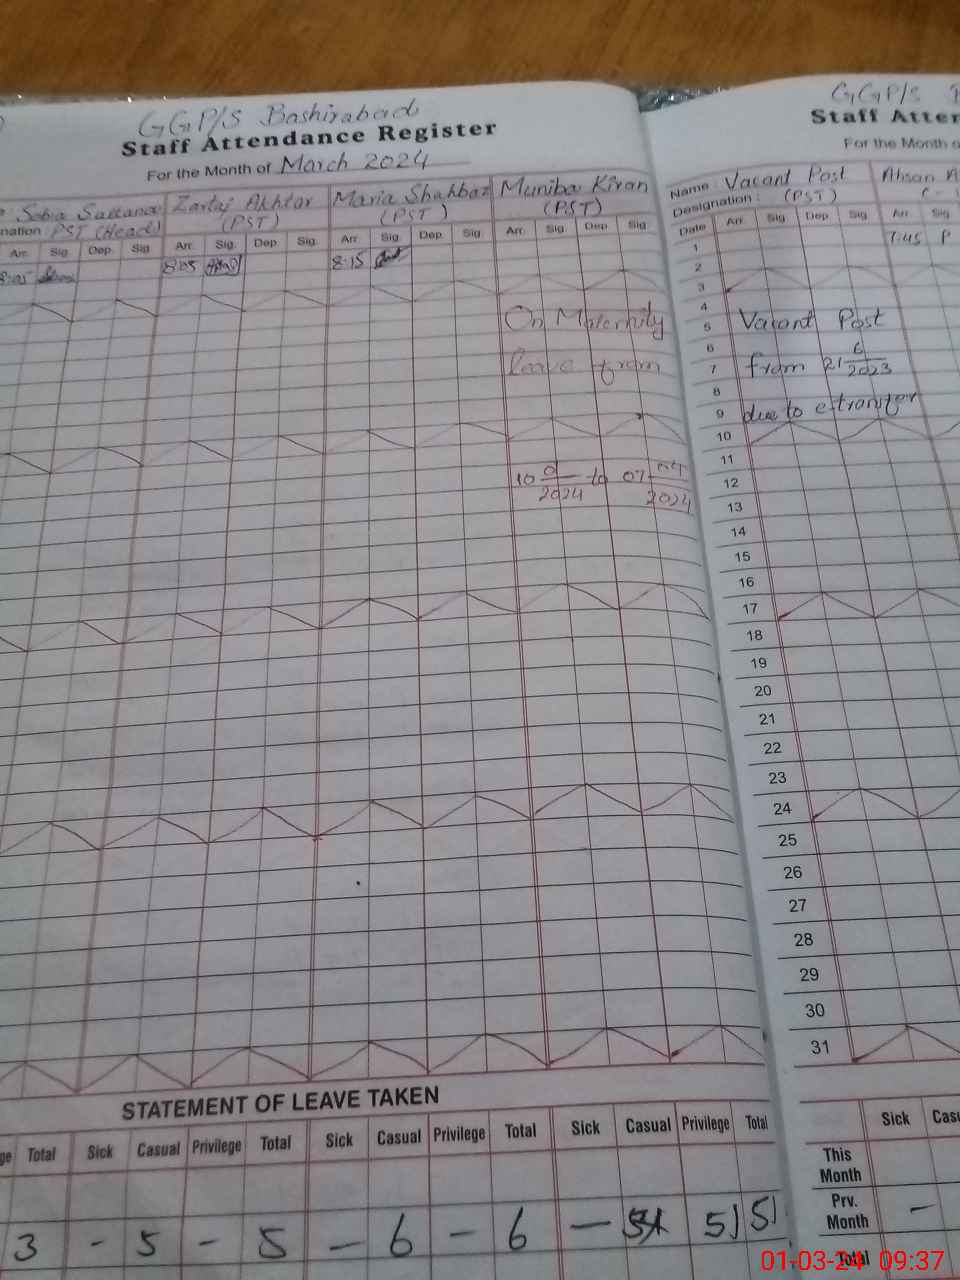 GGP/S Bashirabad
Staff Attendance Register
For the Month of March 2024
Sobia Sultana Zartaj Akhtar Maria Shahbaz Muniba Kiran
nation PST (Head) (PST) (PST) (PST)
Arr. Sig. Dep. Sig. Arr. Sig. Dep. Sig. Arr. Sig. Dep. Sig. Arr. Sig. Dep. Sig.
8:05 8:05 8:15
On Maternity
leave from
to
2024 2024
STATEMENT OF LEAVE TAKEN
ge Total Sick Casual Privilege Total Sick Casual Privilege Total Sick Casual Privilege Total
3 - 5 - 5 - 6 - 6 - 51 51
GGP/S
Staff Atten
For the Month o
Name: Vacant Post Ahsan A
Designation: (PST)
Date Arr. Sig. Dep. Sig. Arr. Sig.
1 7:45 P
2
3
4
5 Vacant Post
6
7 from 21 6/2023
8
9 due to e.transfer
10
11
12
13
14
15
16
17
18
19
20
21
22
23
24
25
26
27
28
29
30
31
Sick Casu
This Month
Prv. Month -
Total
01-03-24 09:37